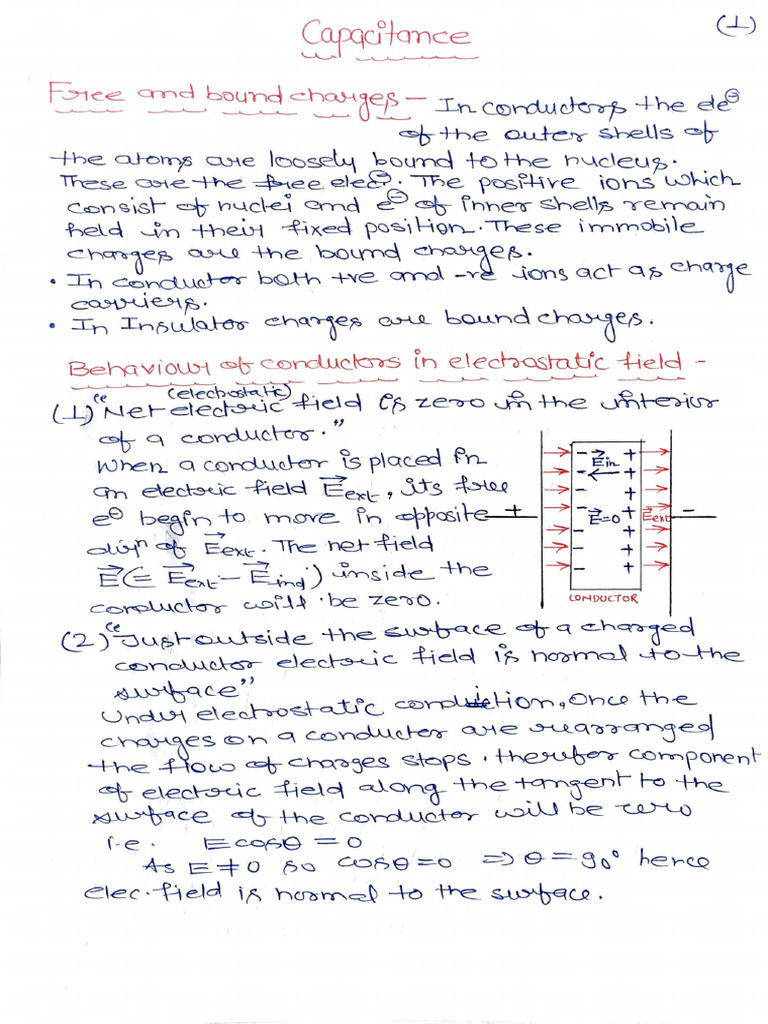 (1)
Capacitance
Free and bound charges - In conductors the ele⊖
of the outer shells of
the atoms are loosely bound to the nucleus.
These are the free elec⊖. The positive ions which
consist of nuclei and e⊖ of inner shells remain
held in their fixed position. These immobile
charges are the bound charges.
• In conductor both +ve and -ve ions act as charge
carriers.
• In Insulator charges are bound charges.
Behaviour of conductors in electrostatic field -
(electrostatic)
(1) "Net electric field is zero in the interior
of a conductor."
When a conductor is placed in
an electric field E⃗ext, its free
e⊖ begin to move in opposite
dirⁿ of E⃗ext. The net field
E⃗(= E⃗ext - E⃗ind) inside the
conductor will be zero.
+ - E⃗in + -
E⃗=0 E⃗ext
CONDUCTOR
(2) "Just outside the surface of a charged
conductor electric field is normal to the
surface"
Under electrostatic condition, Once the
charges on a conductor are rearranged
the flow of charges stops. therefor component
of electric field along the tangent to the
surface of the conductor will be zero
i.e. E cosθ = 0
As E ≠ 0 so cosθ = 0 ⇒ θ = 90° hence
elec. field is normal to the surface.